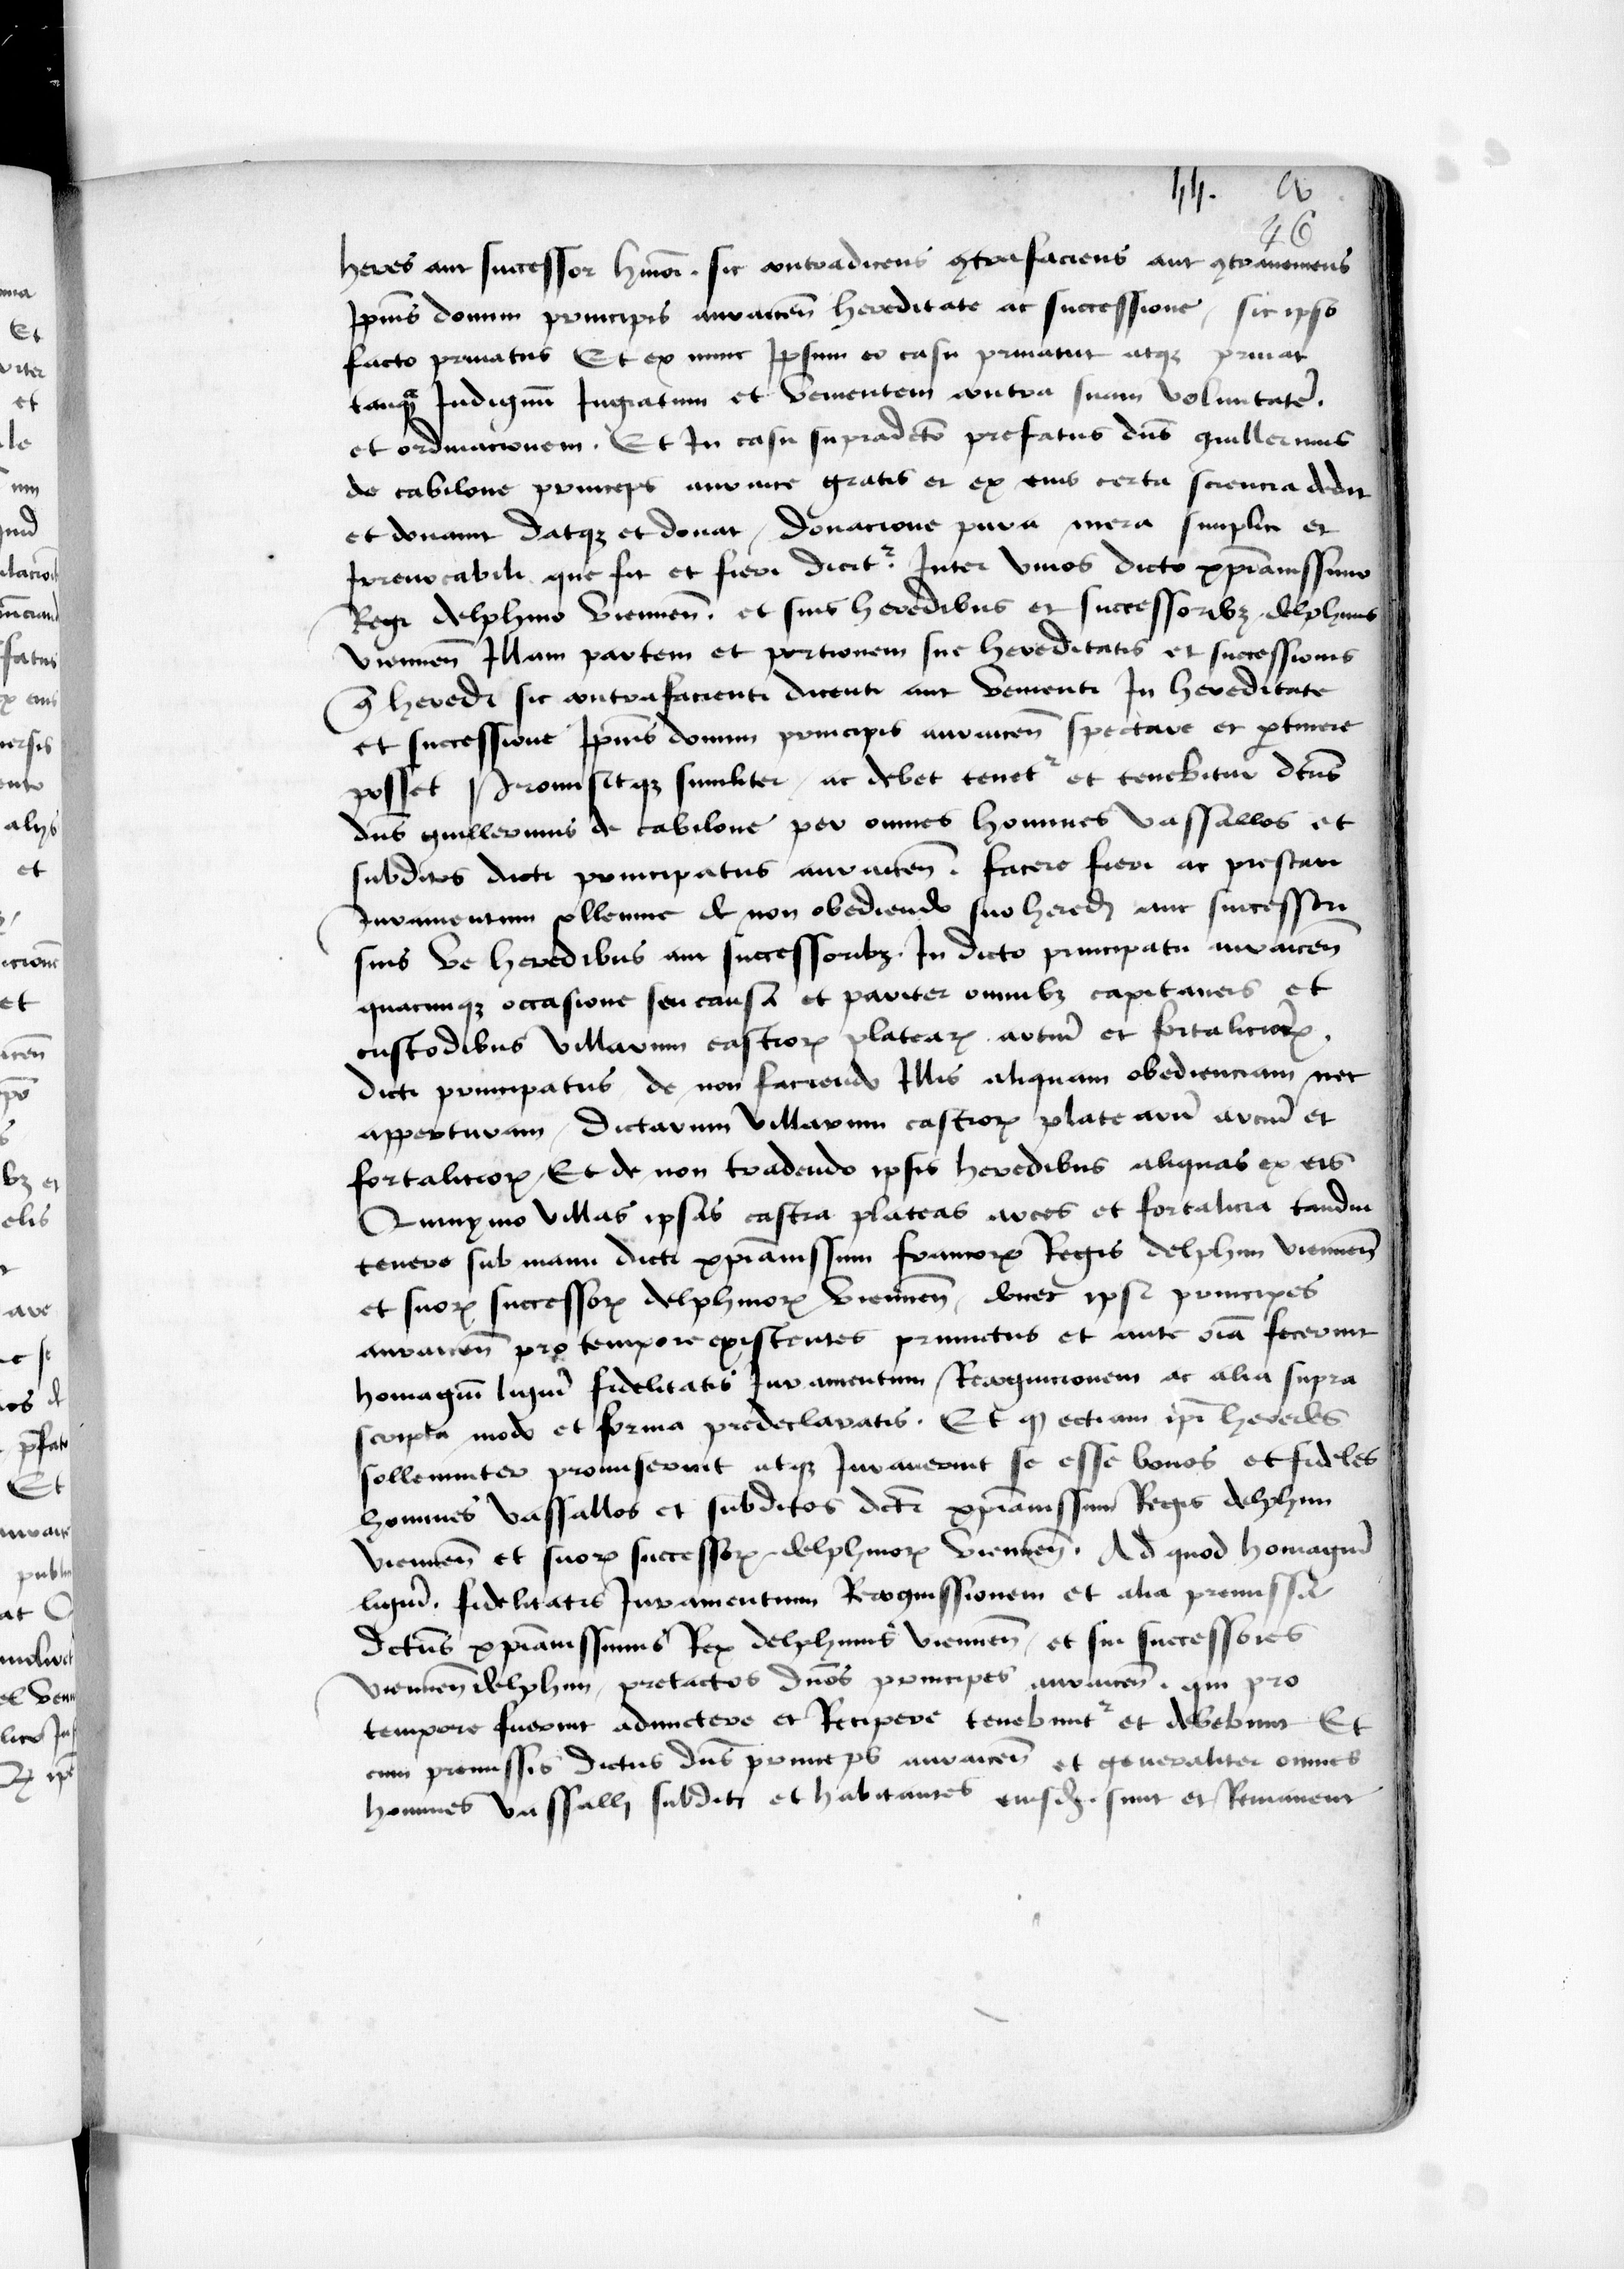 44. cv
46
heres aut successor hmōi. sic contradicens ꝯtrafaciens aut ꝯtraueniens
Ipius domini principis auraicen̄ hereditate ac successione, sic ipso
facto priuatus Et ex nunc Ipsum eo casu priuauit atqꝫ priuat
tanqͣ Indignū Ingratum et Venientem contra suam Voluntatē.
et ordinacionem. Et In casu supradcto prefatus dn̄s guillermus
de cabilone princeps auraice gratis et ex eius certa sciencia dedit
et donauit Datqꝫ et donat, Donacione pura mera simplici et
Irreuocabili que fit et fieri dicitᷣ. Inter Viuos dicto xp̄ianissimo
Regi delphino Viennen̄. et suis heredibus et successoribꝫ delphinis
Viennen̄ Illam partem et portionem sue hereditatis et successionis
q̄ heredi sic contrafacienti dicenti aut Venienti In hereditate
et successione Ipius domini principis auraicen̄ spectare et ꝑtinere
posset Promisitqꝫ similiter, ac debet tenetᷣ et tenebitur dcūs
dn̄s guillermus de cabilone per omnes homines Vassallos et
subditos dicti principatus auraicen̄. facere fieri ac prestari
Iuramentum sollemne de non obediendo suo heredi aut successori
suis Ve heredibus aut successoribꝫ. In dicto principatu auraicen̄
quacunqꝫ occasione seu causa et pariter omnibꝫ capitaneis et
custodibus Villarum castroꝝ plateaꝝ arciū et fortalicioꝝ.
dicti principatus, de non faciendo Illis aliquam obedienciam nec
apperturam, Dictarum Villarum castroꝝ platearū arciū et
fortalicioꝝ, Et de non tradendo ipsis heredibus aliquas ex eis
Quinymo Villas ipsas castra plateas arces et fortalicia tandiu
tenere sub manu dicti xp̄ianissimi francoꝝ Regis delphini Viennen̄
et suoꝝ successoꝝ delphinoꝝ Viennen̄, donec ipsi principes
auraicen̄ pro tempore existentes primitus et ante oīa fecerint
homagiū ligiū fidelitatis Iuramentum Recognicionem ac alia supra
scripta modo et forma predeclaratis. Et qꝫ eciam ipī heredes
sollemniter promiserint atqꝫ Iurauerint se esse bonos et fideles
homines Vassallos et subditos dcti xp̄ianissimi Regis delphini
Viennen̄ et suoꝝ successoꝝ delphinoꝝ Viennen̄. Ad quod homagiū
ligiū. fidelitatis Iuramentum Recognissionem et alia premissa
Dctūs xp̄ianissimus Rex delphinus Viennen̄, et sui successores
Viennen̄ delphini, pretactos dn̄os principes auraicen̄. qui pro
tempore fuerint admictere et Recipere tenebuntᷣ et debebunt Et
cum premissis dictus dn̄s princeps auraicen̄ et generaliter omnes
homines Vassalli subditi et habitantes eiusdꝫ. sint et Remaneant